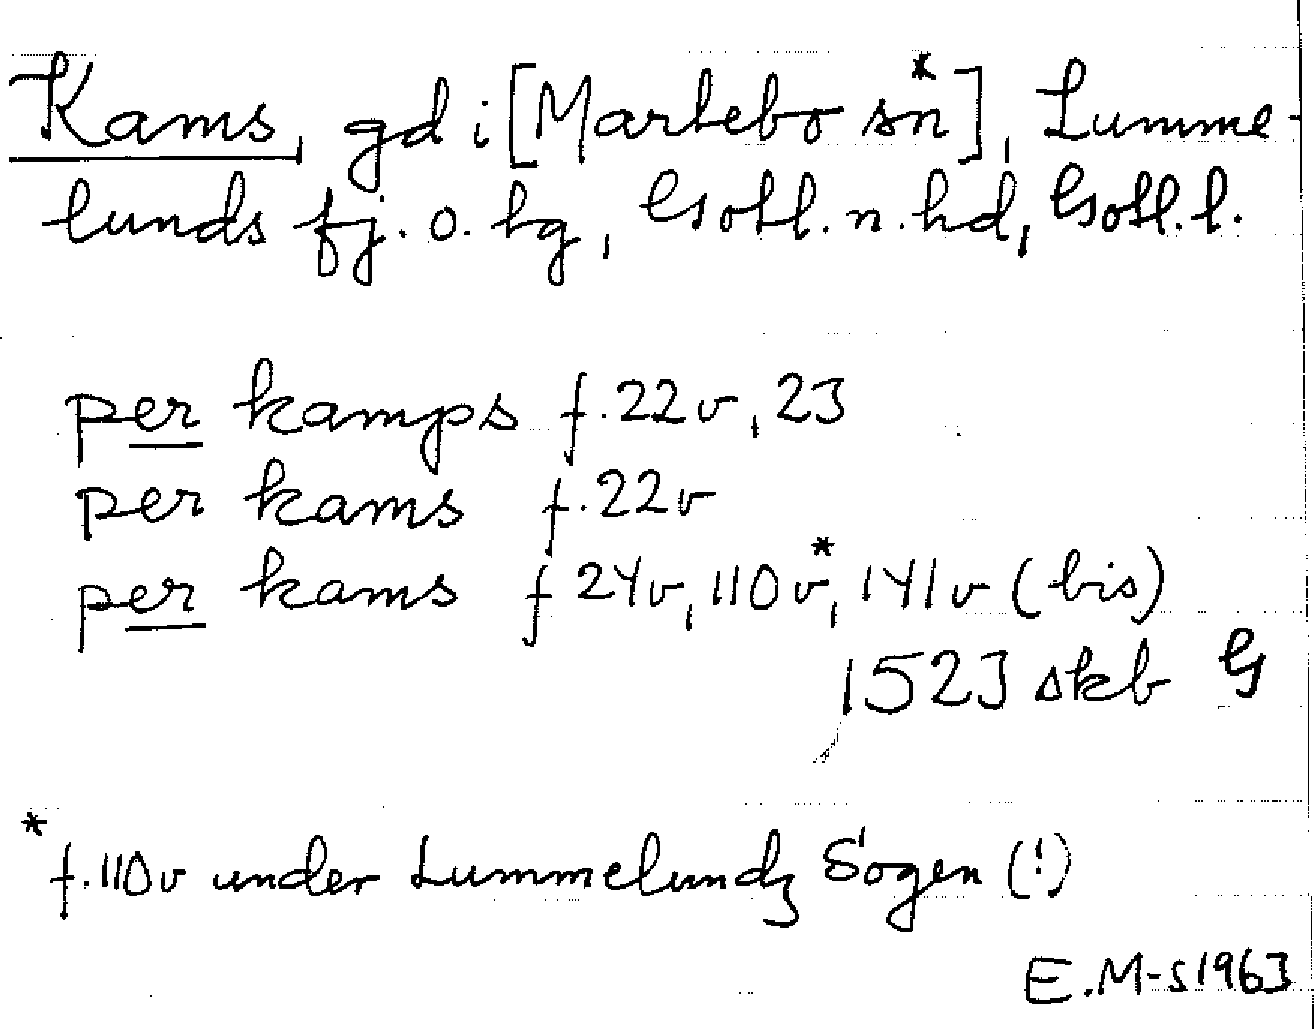 Kams, gd i [Martebo sn*], Lumme-
lunds fj. o. tg, Gotl. n. hd, Gotl. l.
per kamps f. 22v, 23
per kams f. 22v
per kams f 24v, 110v*, 141v (bis)
1523 skb G
* f. 110v under Lummelundz Sogen (!)
E.M-s 1963